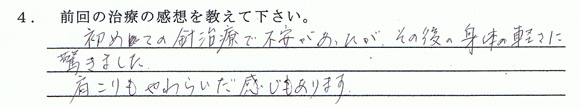 4. 前回の治療の感想を教えて下さい。
初めての針治療で不安があったが、その後の身体の軽さに
驚きました。
肩こりもやわらいだ感じもあります